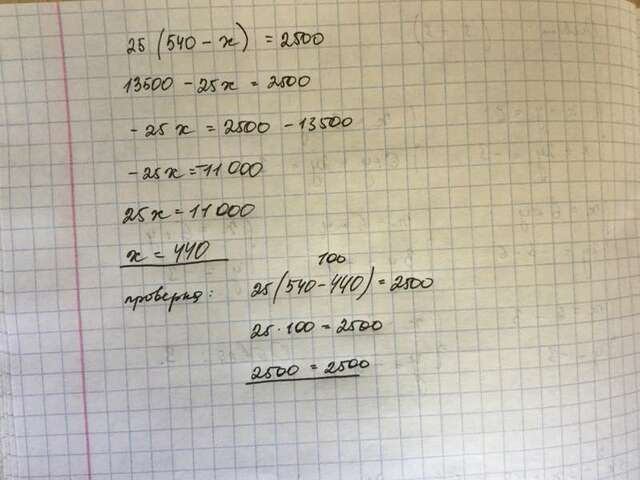 25(540-x) = 2500
13500 - 25x = 2500
-25x = 2500 - 13500
-25x = -11 000
25x = 11 000
x = 440
100
проверка: 25(540-440) = 2500
25·100 = 2500
2500 = 2500